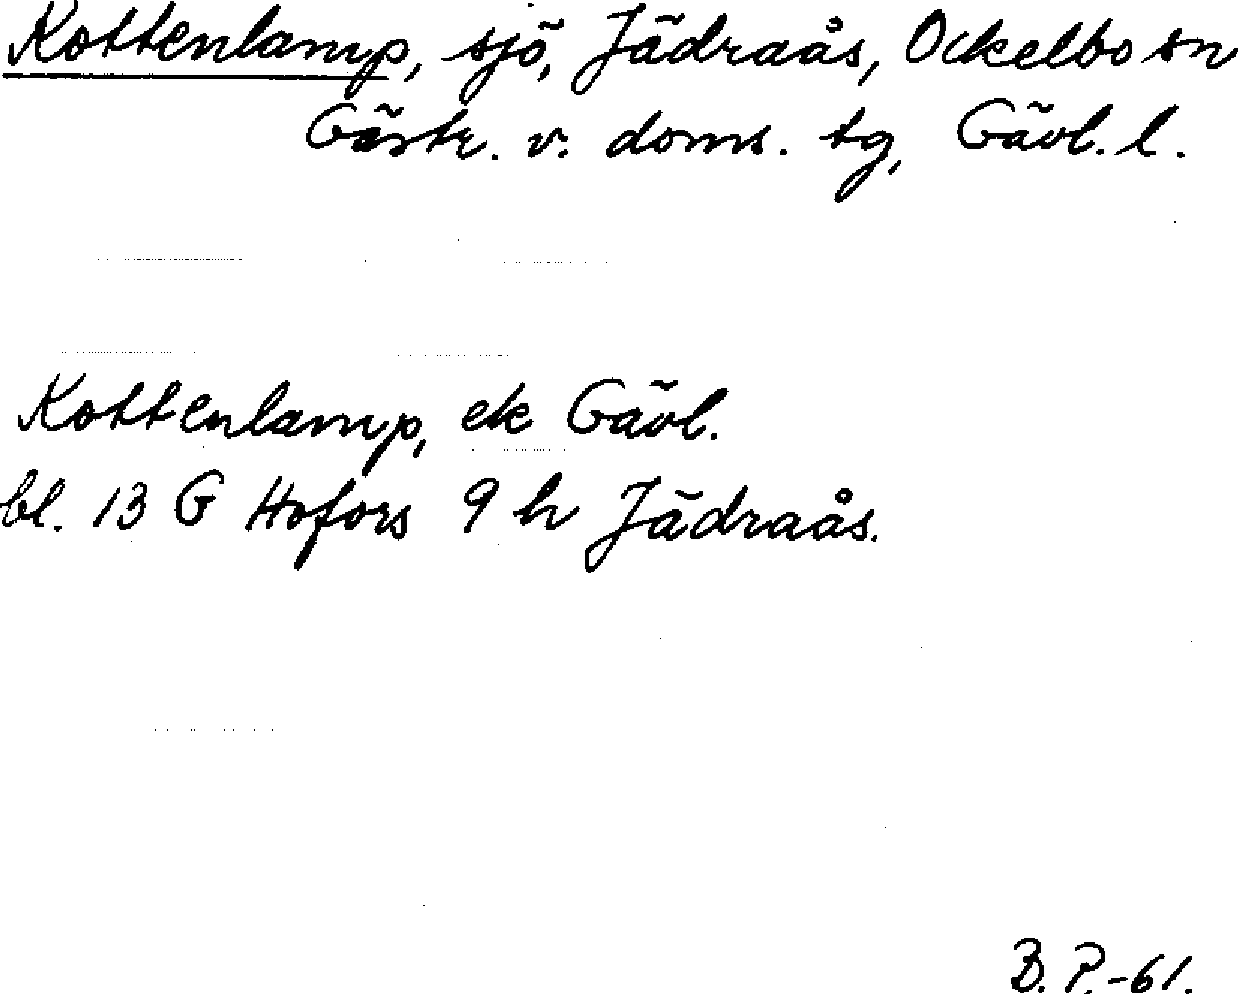 Kottenlamp, sjö, Jädraås, Ockelbo sn
Gästr. v. doms. tg, Gävl. l.
Kottenlamp, ek Gävl.
bl. 13 G Hofors 9 h Jädraås.
B. P.-61.